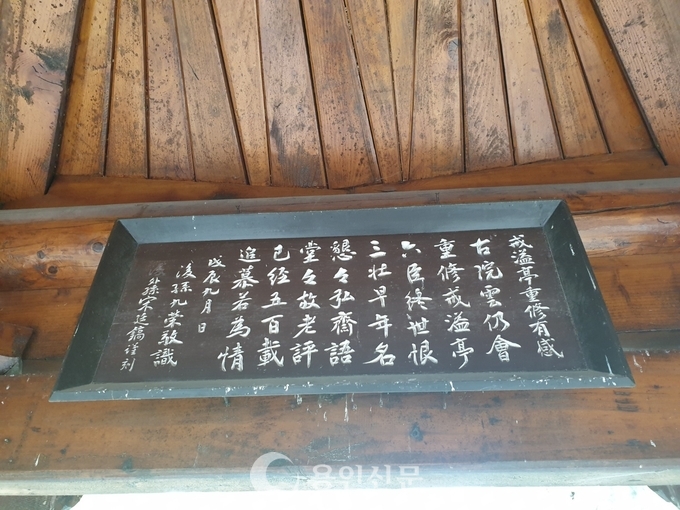 戒溢亭重修有感
古院雲仍會
重修戒溢亭
六臣終世恨
三壯早年名
懇々弘齋語
堂々故老評
已經五百載
追慕若為情
戊辰九月 日
後孫九榮敬識
外孫宋
謹刻
용인신문